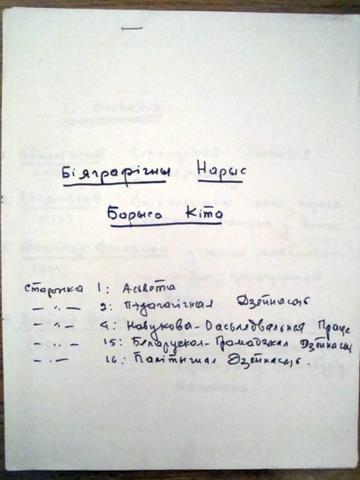 Біяграфічны Нарыс
Барыса Кіта
старонка 1: Асвета
— " — 2: Пэдагагічная Дзейнасьць
— " — 4: Навукова-Dасьледвальная Праца
— " — 15: Беларуска-Грамадзкая Дзейнасьць
— " — 16: Палітычная Дзейнасьць.